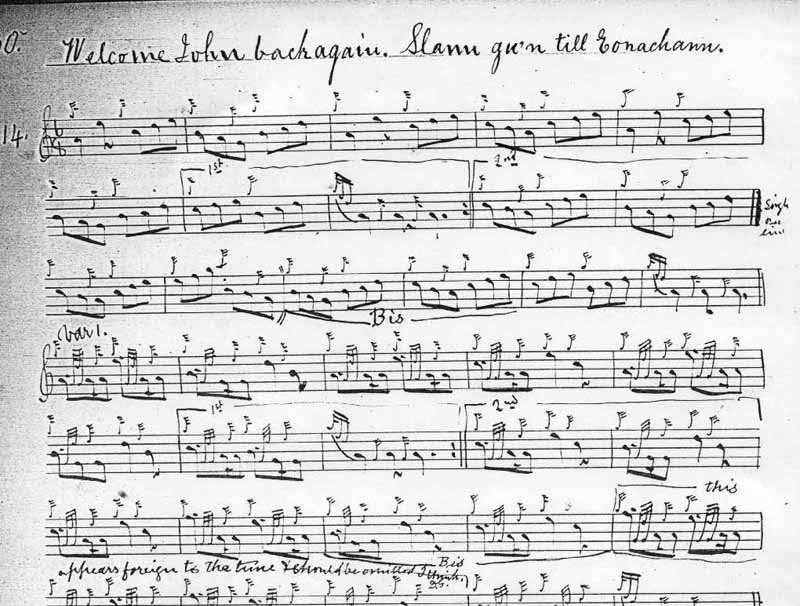 Welcome John back again. Slann gu'n till Eonachann.
14.
1st
2nd
Bis
Var 1.
1st
2nd
this
appears foreign to the tune & should be omitted I think,
Bis